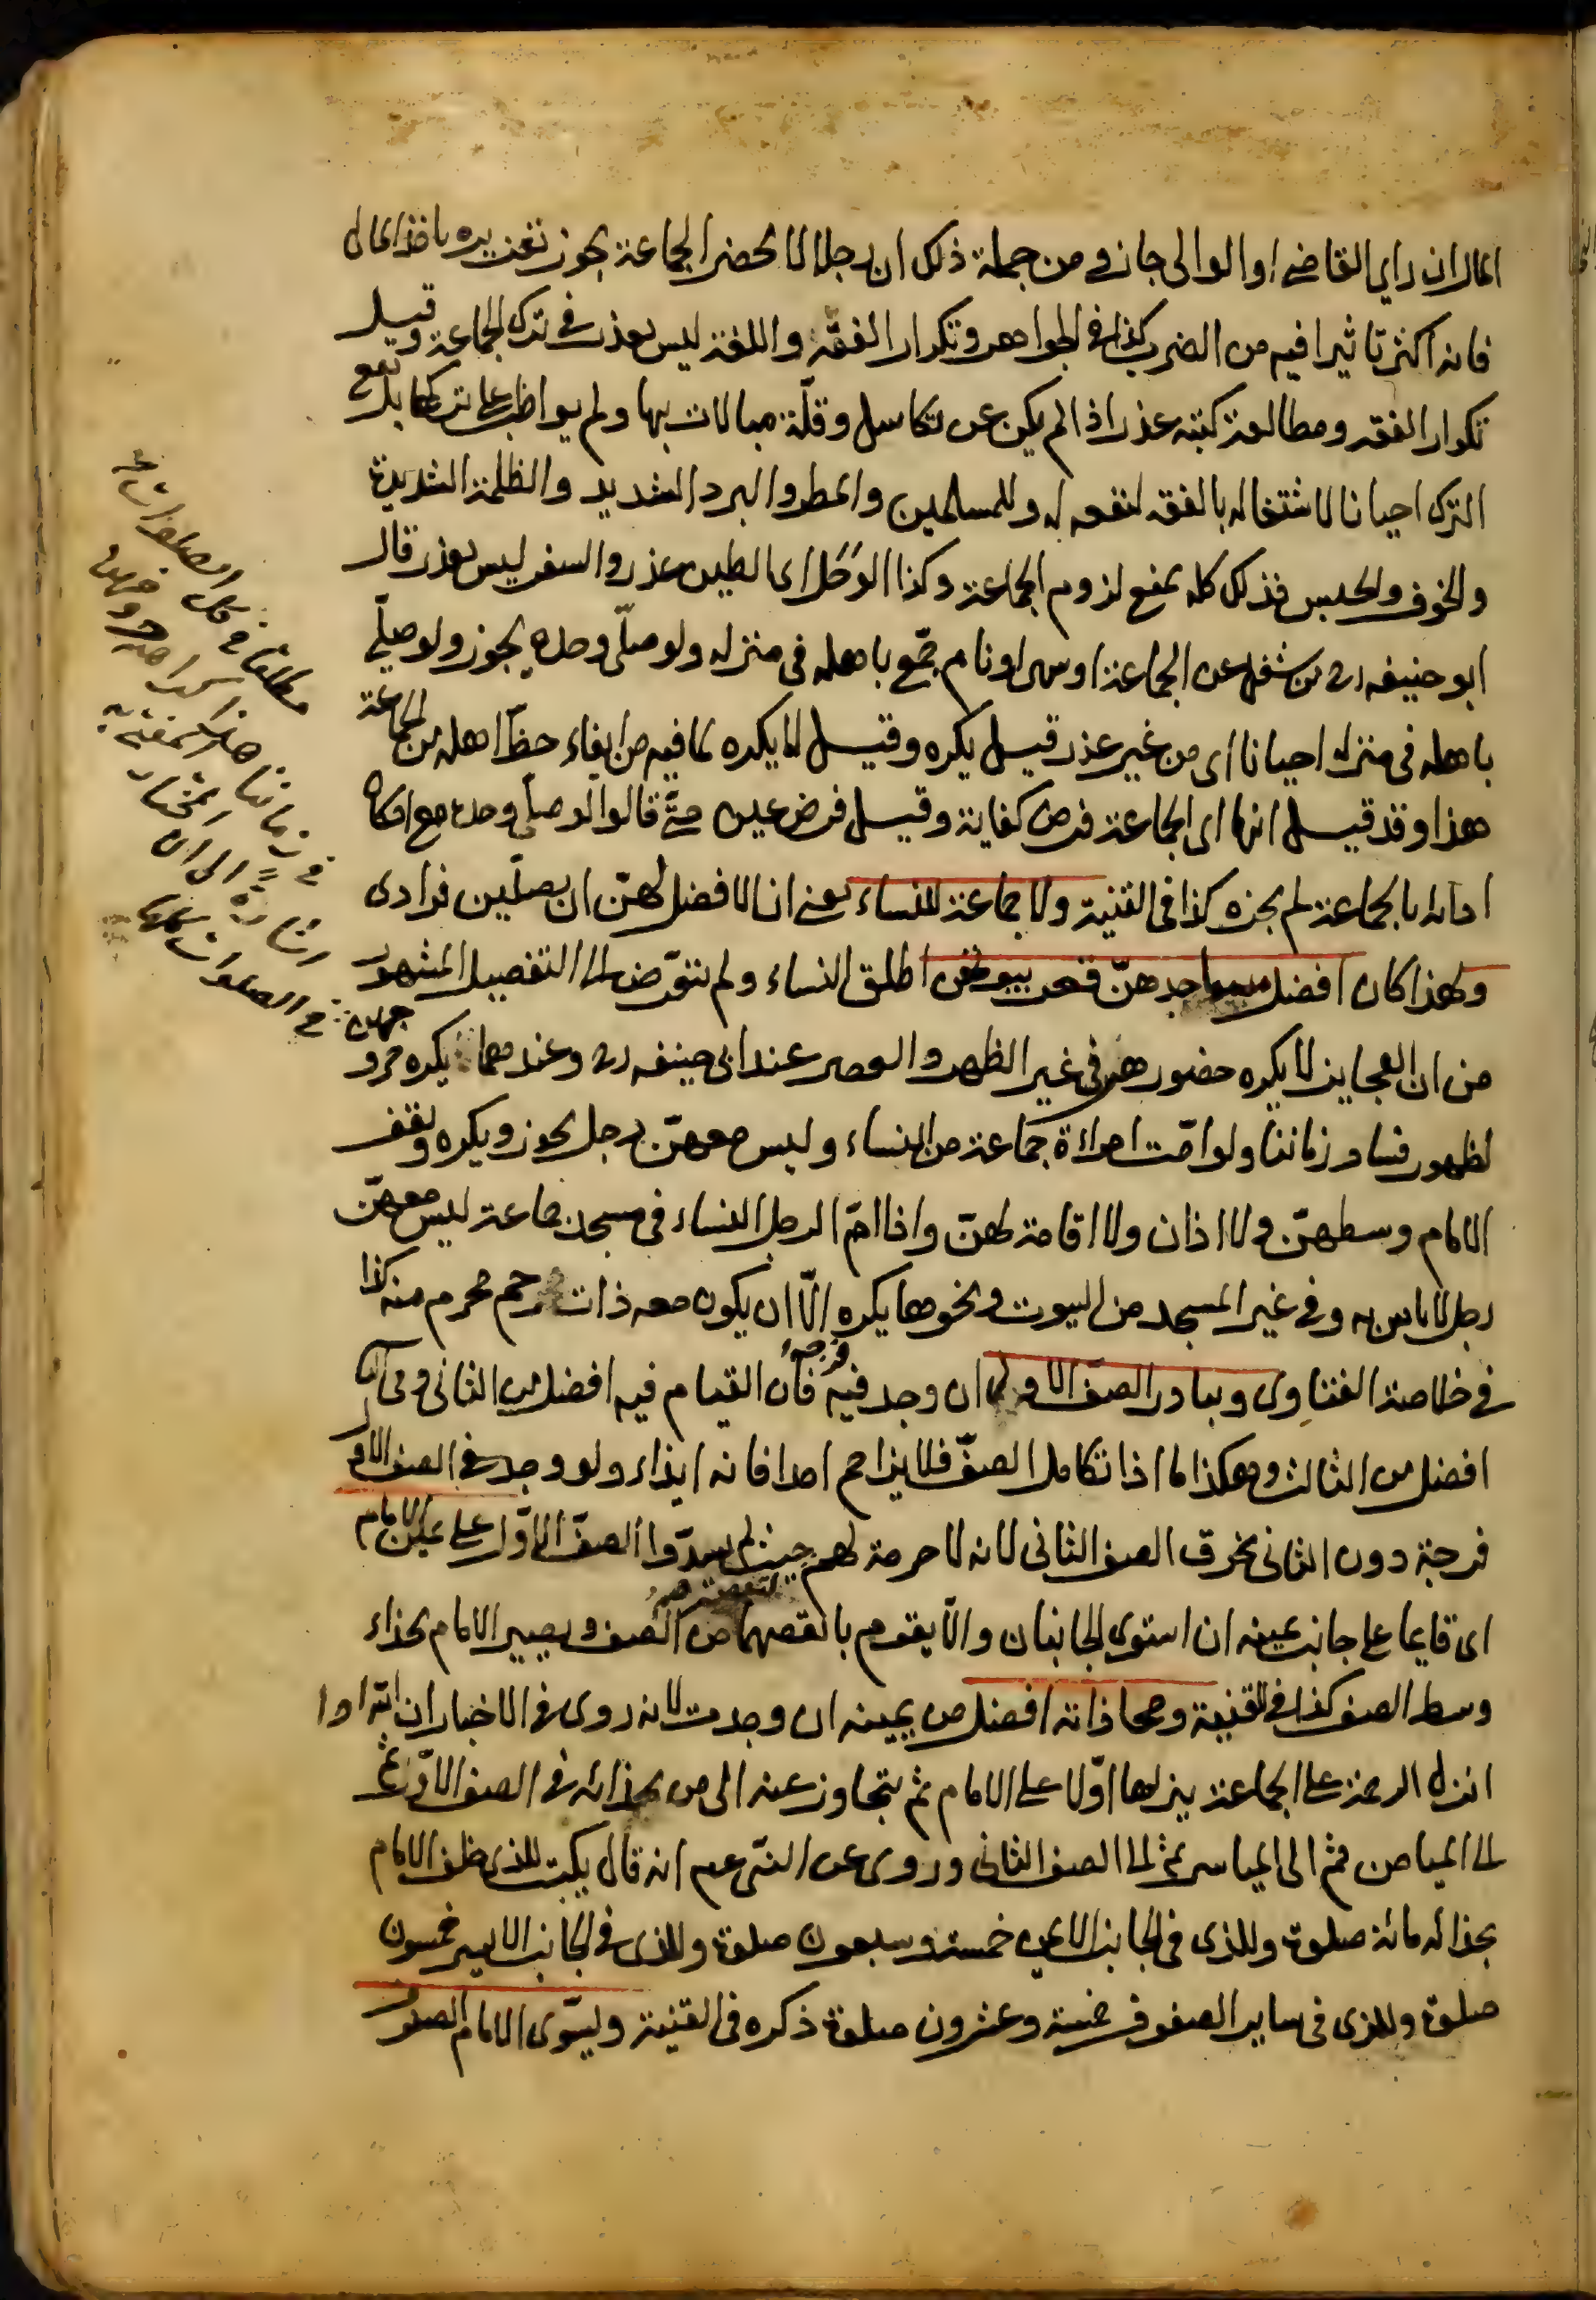 المال ان راى القاضى او الوالى جاز ومن جملة ذلك ان رجلا لا يحضر الجماعة يجوز تعزيره باخذ المال
فانه اكثر تاثيرا فيه من الضرب كذا فى الجواهر وتكرار الفقه واللغة ليس بعذر فى ترك الجماعة وقيل
تكرار الفقه ومطالعة كتبه عذر اذا لم يكن عن تكاسل وقلّة مبالات بها ولم يواظب على تركها بل يقع
الترك احيانا لاشتغاله بالفقه لنفعه له وللمسلمين والمطر والبرد الشديد والظلمة الشديدة
والخوف والحبس فذلك كله يمنع لزوم الجماعة وكذا الوَحَل اى الطين عذر والسفر ليس بعذر قال
ابو حنيفه رح من شغل عن الجماعة او سهى او نام جمّع باهله فى منزله ولو صلّى وحده يجوز ولو صلّى
باهله فى منزله احيانا اى من غير عذر قيل يكره وقيل لا يكره لما فيه من ايفاء حظّ اهله من الجماعة
هذا وقد قيل انها اى الجماعة فرض كفاية وقيل فرض عين حتّى قالوا لو صلى وحده مع امكان
ادائه بالجماعة لم يجزه كذا فى القنية ولا جماعة للنساء يعنى ان الافضل لهنّ ان يصلّين فرادى
ولهذا كان افضل مساجدهنّ قعر بيوتهن اطلق النساء ولم يتعرّض الى التفصيل المشهور
من ان العجايز لا يكره حضورهن فى غير الظهر والعصر عند ابى حنيفه رح وعندهما يكره خروجهن
لظهور فساد زماننا ولو امّت امراءة جماعة من النساء وليس معهنّ رجل يجوز ويكره وتقف
الامام وسطهنّ ولا اذان ولا اقامة لهنّ واذا امّ الرجل النساء فى مسجد جماعة ليس معهنّ
رجل لا باس به وفى غير المسجد من البيوت ونحوها يكره الّا ان يكون معه ذات رحم محرم منه كذا
فى خلاصة الفتاوى ويبادر الصفّ الاول ان وجد فيه فرجة فان القيام فيه افضل من الثانى وفى الثانى
افضل من الثالث وهكذا اما اذا تكامل الصفّ فلا يزاحم احدا فانه ايذاء ولو وجد فى الصف الاول
فرجة دون الثانى يخرق الصف الثانى لانه لا حرمة لهم حيث لم يسدّوا الصفّ الاوّل على يمين الامام
اى قايما على جانب يمينه ان استوى الجانبان والّا يقوم بانقصهما من الصف ويصير الامام بحذاء
وسط الصف كذا فى القنية ومحاذاته افضل من يمينه ان وجدت لانه روى فى الاخبار ان الله اذا
انزل الرحمة على الجماعة ينزلها اوّلا على الامام ثم يتجاوز عنه الى من بحذائه فى الصف الاوّل ثمّ
الى الميامن ثم الى المياسر ثم الى الصف الثانى وروى عن النبى عم انه قال يكتب للذى خلف الامام
بحذائه مائة صلوة وللذى فى الجانب الايمن خمسة وسبعون صلوة وللذى فى الجانب الايسر خمسون
صلوة وللذى فى ساير الصفوف خمسة وعشرون صلوة ذكره فى القنية وليسوّى الامام الصفوف
فى زماننا
اشارة الى ان المختار
فى الصلوات كلها